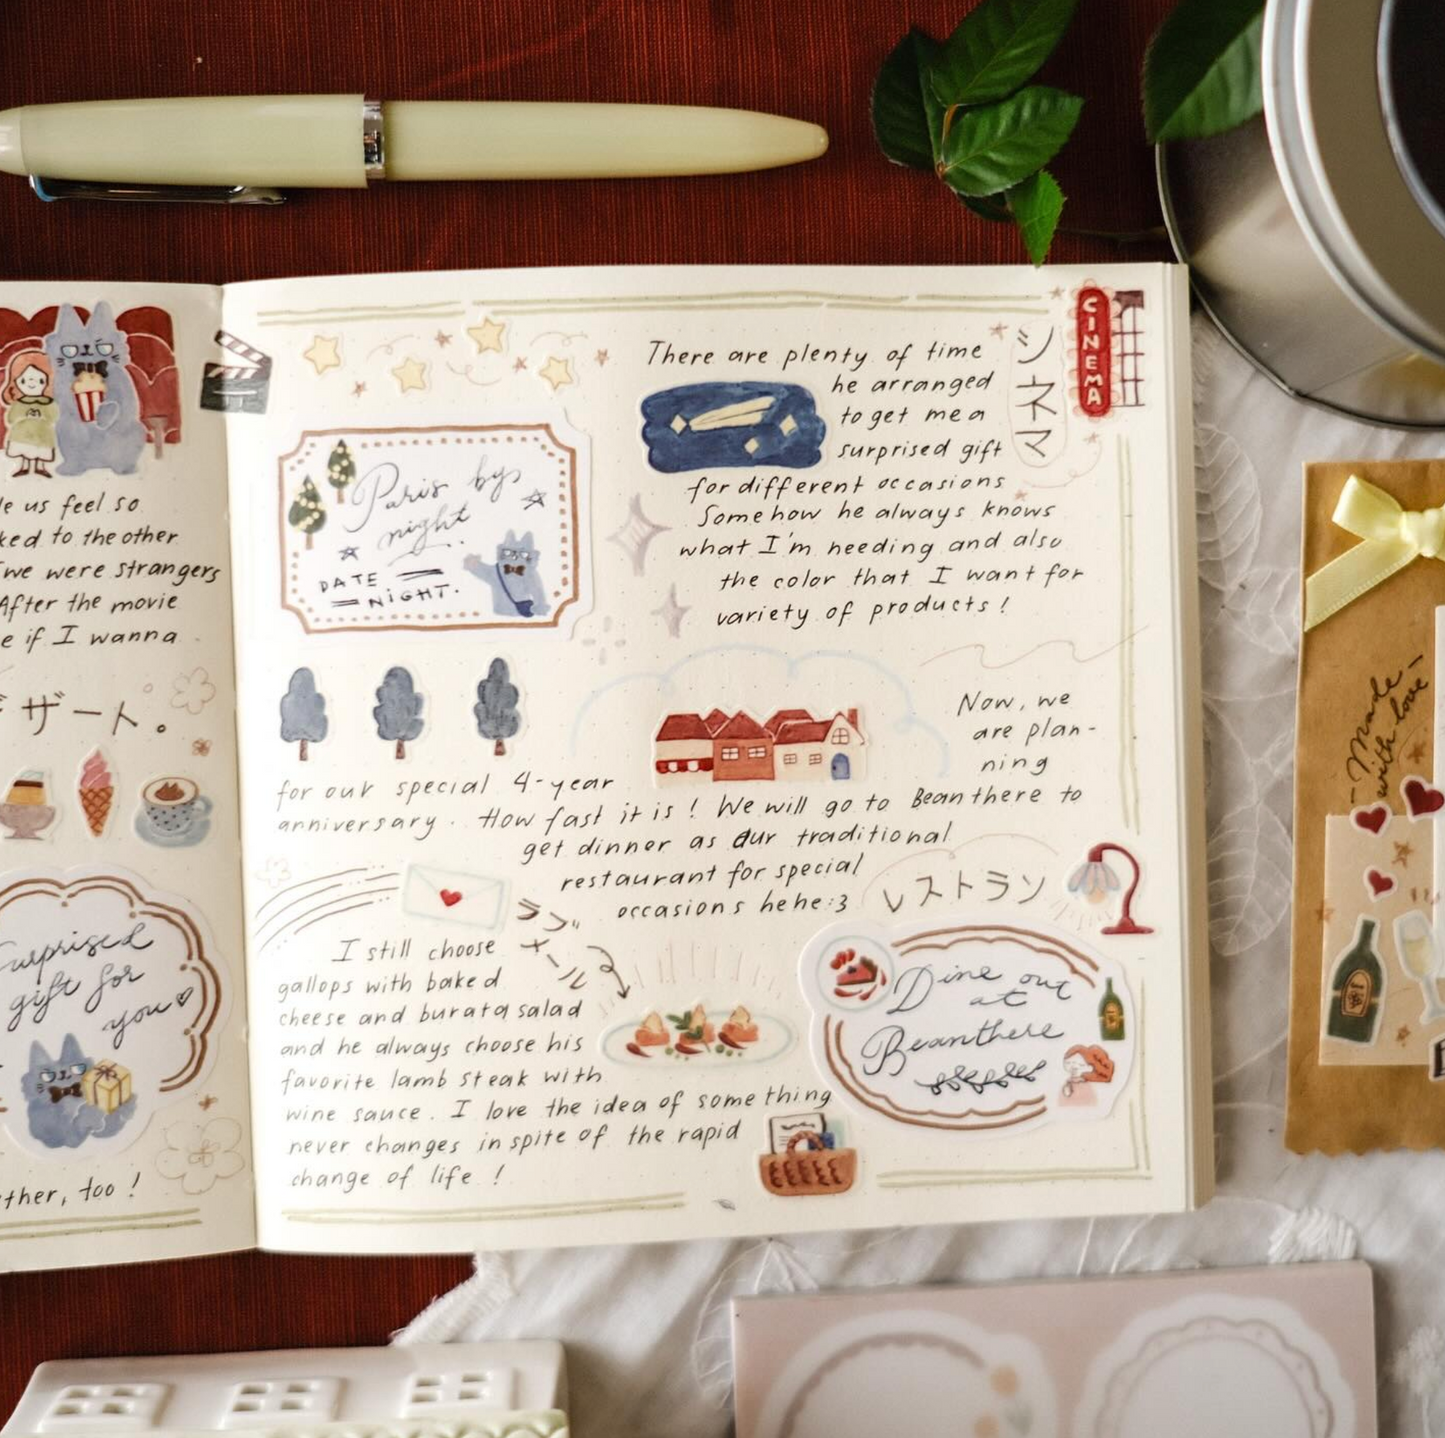 le us feel so
ked to the other
we were strangers
After the movie
e if I wanna
デザート。
Surprised
gift for
you
ther, too !
Paris by
night.
DATE
NIGHT.
There are plenty of time
he arranged
to get me a
surprised gift
for different occasions
Somehow he always knows
what I'm needing and also
the color that I want for
variety of products !
シネマ
CINEMA
Now, we
are plan-
ning
for our special 4-year
anniversary. How fast it is ! We will go to Beanthere to
get dinner as our traditional
restaurant for special
occasions hehe :3
レストラン
I still choose
gallops with baked
cheese and burata salad
and he always choose his
favorite lamb steak with
wine sauce. I love the idea of something
never changes inspite of the rapid
change of life !
ラブ
メール
Dine out
at
Beanthere
- Made
with love -